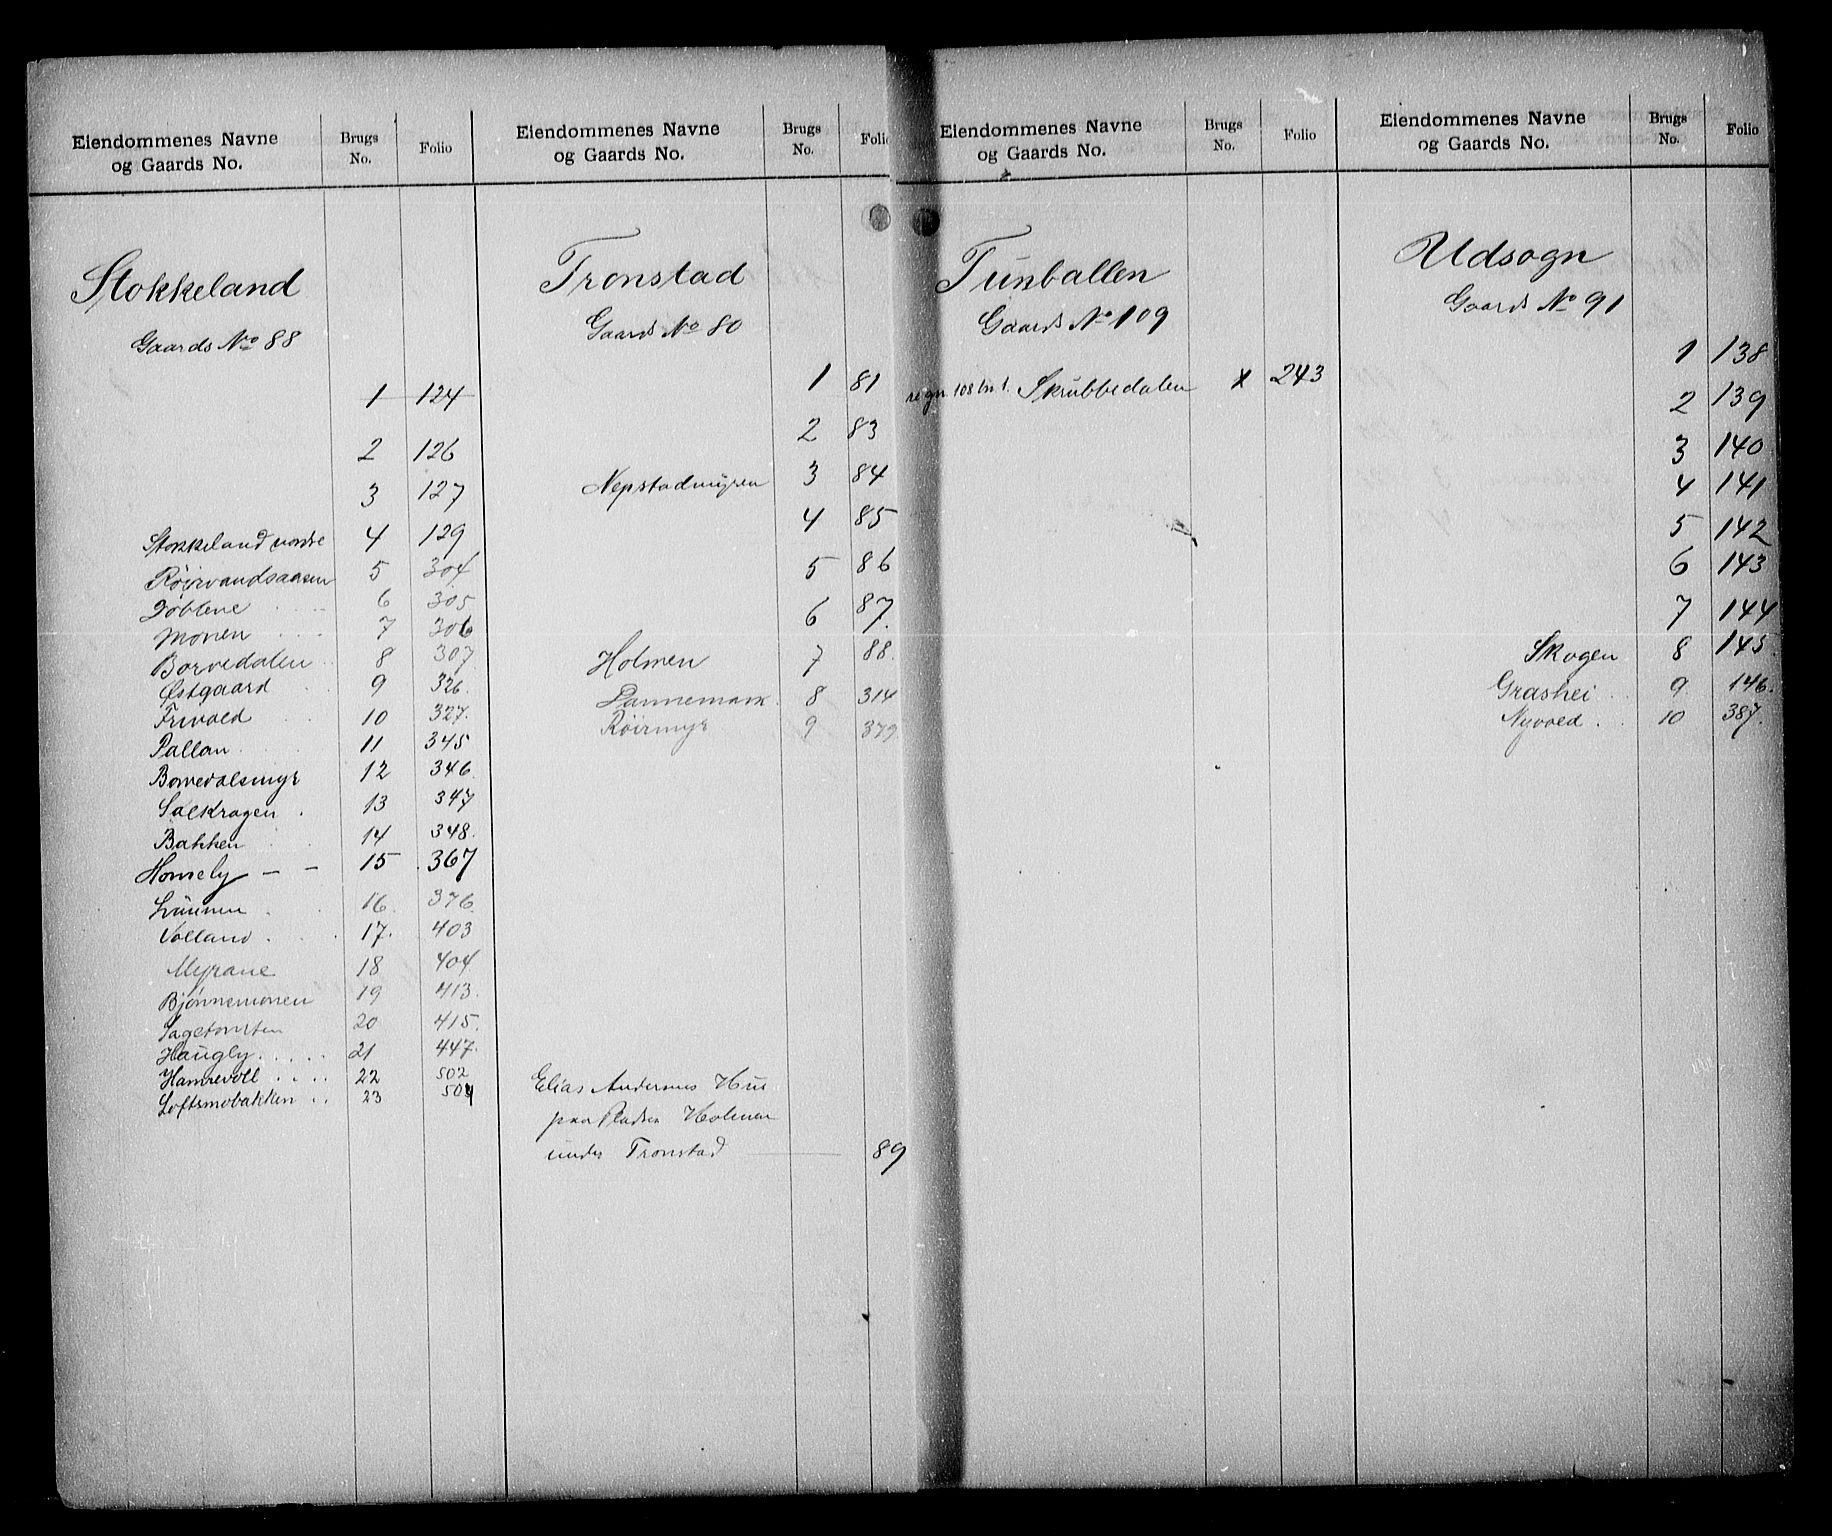 Eiendommenes Navne og Gaards No. Brugs No. Folio
Stokkeland
Gaards No 88
1 124
2 126
3 127
Stokkeland nordre 4 129
Røirvandsaasen 5 304
6 305
Monen 7 306
Borvedalen 8 307
Østgaard 9 326
Frivold 10 327
Pallan 11 345
Borvedalsmyr 12 346
Salkragen 13 347
Bakken 14 348
Homely 15 367
16 376
Volland 17 403
Myrane 18 404
Bjønnemonen 19 413
Sagetomten 20 415
Haugly 21 447
Hamrevoll 22 502
Loftsmobakken 23 504
Eiendommenes Navne og Gaards No. Brugs No. Folio
Tronstad
Gaards No 80
1 81
2 83
Nepstadmyren 3 84
4 85
5 86
6 87
Holmen 7 88
Dannemark 8 314
Røirmyr 9 379
Elias Andersens Hus
paa Pladsen Holmen
under Tronstad 89
Eiendommenes Navne og Gaards No. Brugs No. Folio
Tunballen
Gaards No 109
108 bn 1. Skrubbedalen x 243
Eiendommenes Navne og Gaards No. Brugs No. Folio
Udsogn
Gaards No 91
1 138
2 139
3 140
4 141
5 142
6 143
7 144
Skogen 8 145
Grashei 9 146
Nyvold 10 387